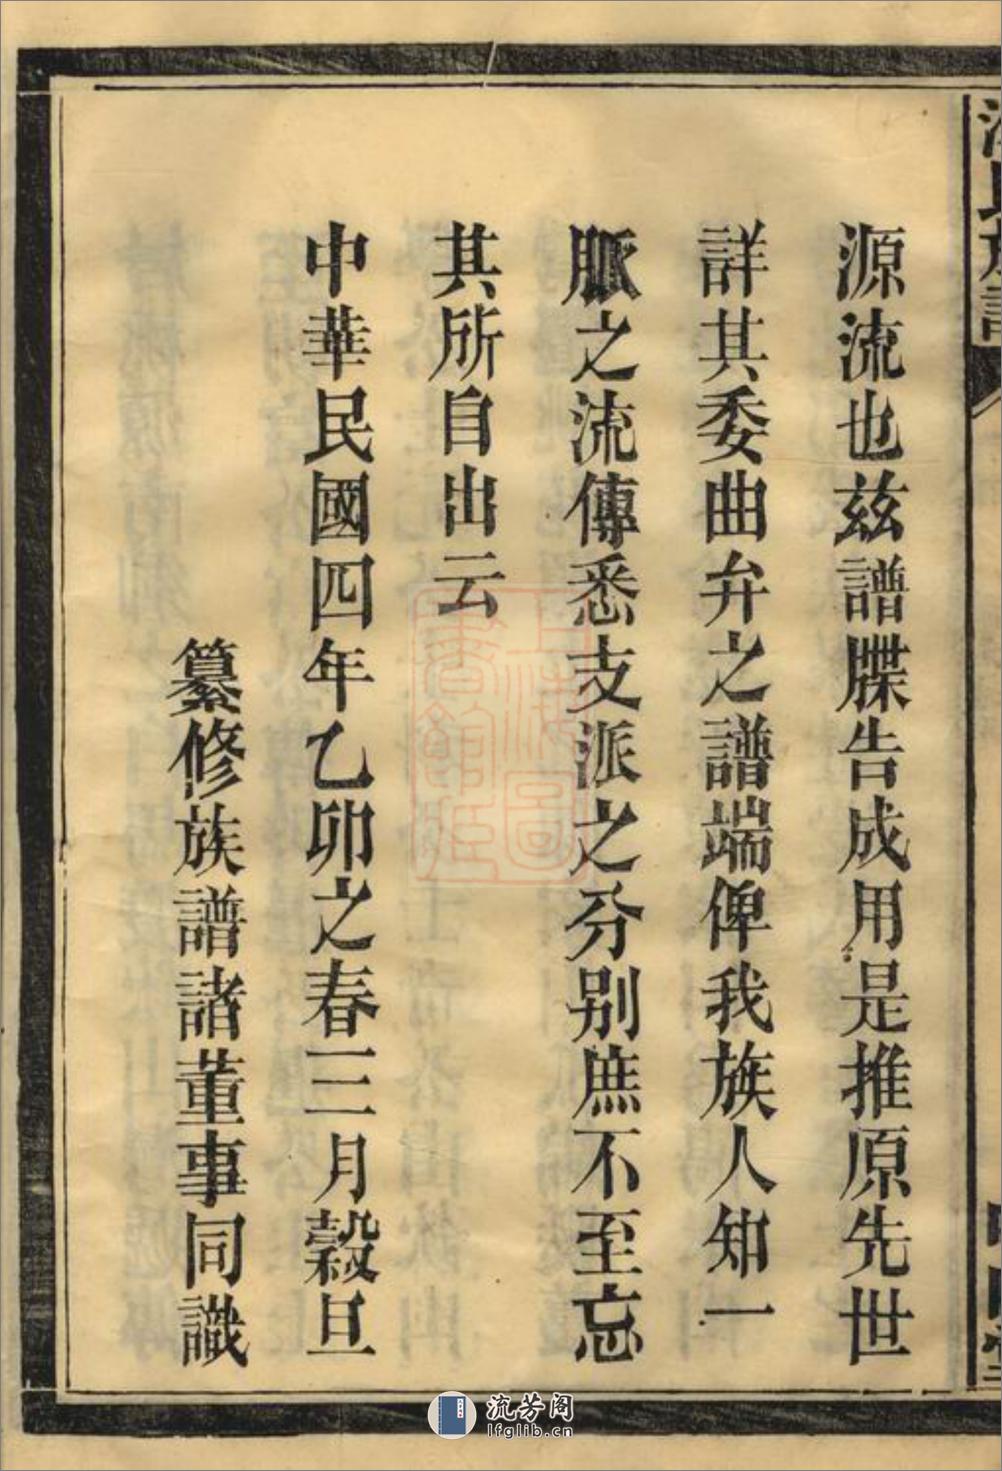 源流也茲譜牒告成用是推原先世
詳其委曲弁之譜端俾我族人知一
脈之流傳悉支派之分别庶不至忘
其所自出云
中華民國四年乙卯之春三月穀旦
纂修族譜諸董事同識
流芳阁
lfglib.cn